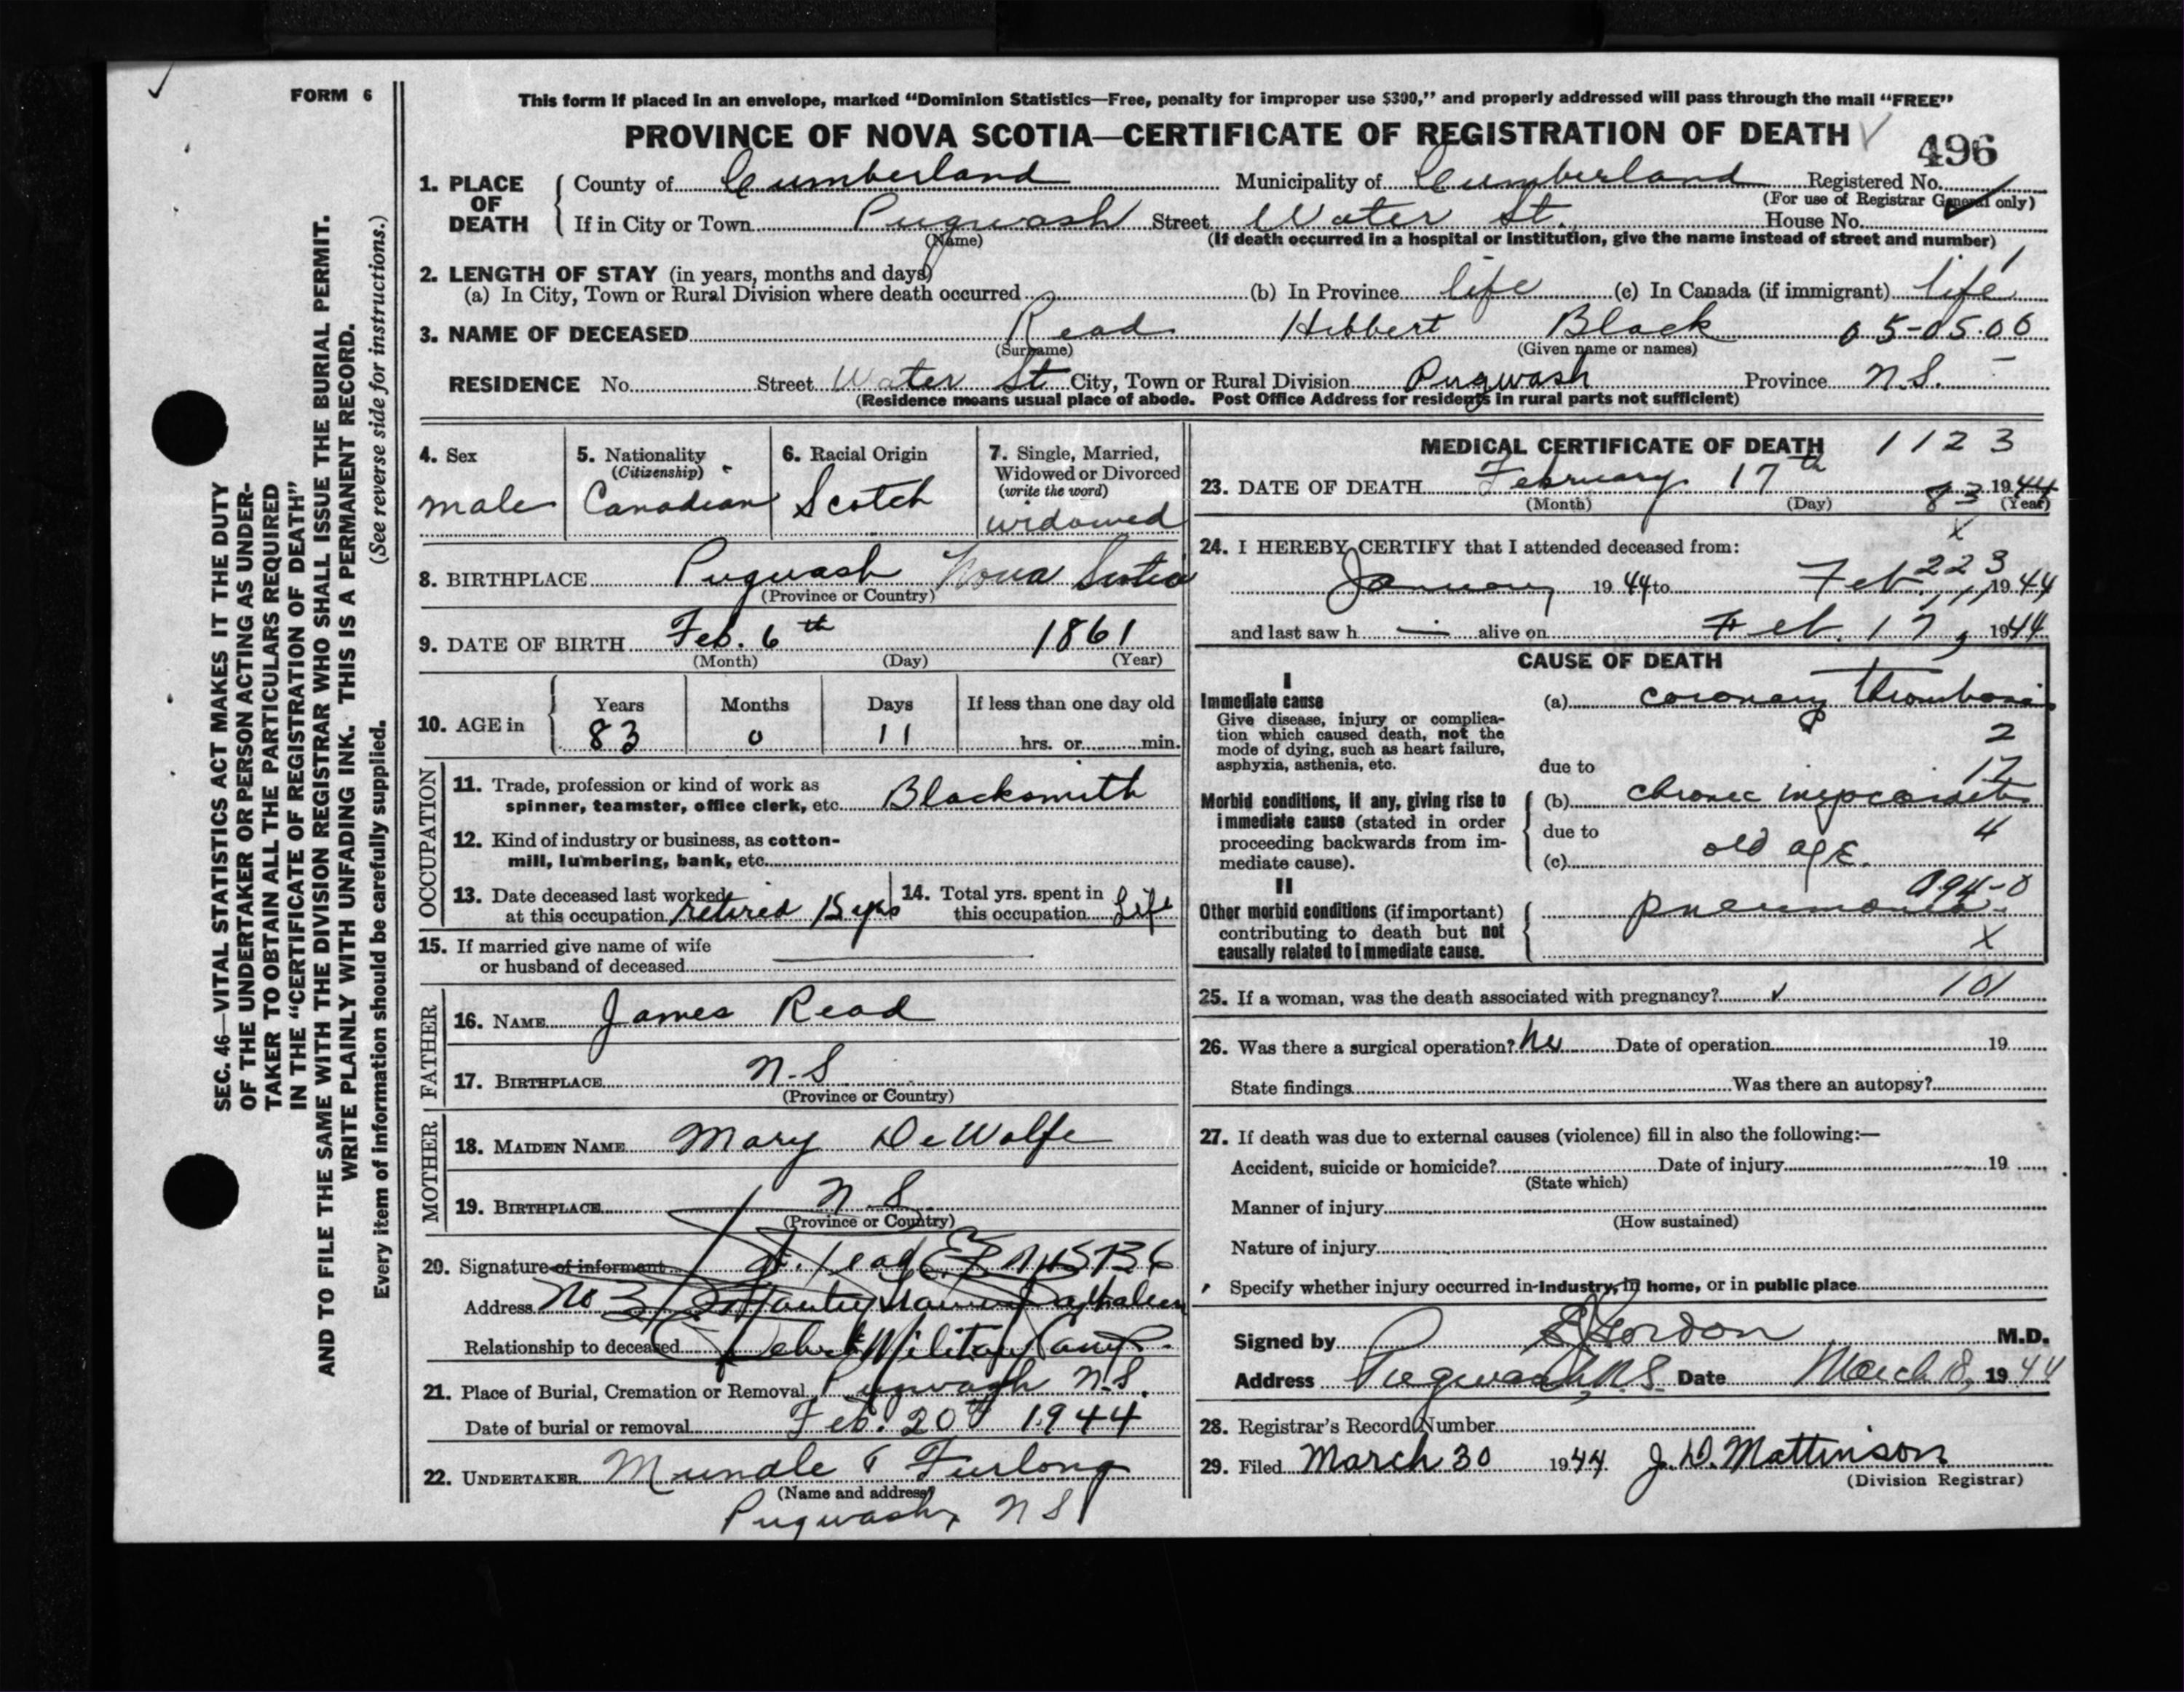 FORM 6
This form if placed in an envelope, marked "Dominion Statistics—Free, penalty for improper use $300," and properly addressed will pass through the mail "FREE"
PROVINCE OF NOVA SCOTIA—CERTIFICATE OF REGISTRATION OF DEATH
496
1. PLACE OF DEATH { County of Cumberland Municipality of Cumberland Registered No.
(For use of Registrar General only)
If in City or Town Pugwash Street Water St. House No.
(Name) (If death occurred in a hospital or institution, give the name instead of street and number)
2. LENGTH OF STAY (in years, months and days)
(a) In City, Town or Rural Division where death occurred (b) In Province life (c) In Canada (if immigrant) life
3. NAME OF DECEASED Read Hibbert Black 05-05.06
(Surname) (Given name or names)
RESIDENCE No. Street Water St City, Town or Rural Division Pugwash Province N.S.
(Residence means usual place of abode. Post Office Address for residents in rural parts not sufficient)
4. Sex
male
5. Nationality
(Citizenship)
Canadian
6. Racial Origin
Scotch
7. Single, Married,
Widowed or Divorced
(write the word)
widowed
8. BIRTHPLACE Pugwash Nova Scotia
(Province or Country)
9. DATE OF BIRTH Feb. 6th 1861
(Month) (Day) (Year)
10. AGE in { Years Months Days If less than one day old
83 0 11 hrs. or min.
OCCUPATION
11. Trade, profession or kind of work as
spinner, teamster, office clerk, etc. Blacksmith
12. Kind of industry or business, as cotton-
mill, lumbering, bank, etc.
13. Date deceased last worked
at this occupation retired 15 yrs
14. Total yrs. spent in
this occupation Life
15. If married give name of wife
or husband of deceased
FATHER
16. NAME James Read
17. BIRTHPLACE N.S
(Province or Country)
MOTHER
18. MAIDEN NAME Mary DeWolfe
19. BIRTHPLACE N S.
(Province or Country)
20. Signature of informant
Address No 3
Relationship to deceased Military Camp.
21. Place of Burial, Cremation or Removal Pugwash N.S.
Date of burial or removal Feb. 20th 1944
22. UNDERTAKER Mundle & Furlong
(Name and address)
Pugwash, N S
MEDICAL CERTIFICATE OF DEATH 1123
23. DATE OF DEATH February 17th 1944
(Month) (Day) 83 (Year)
X
24. I HEREBY CERTIFY that I attended deceased from:
223
January 1944 to Feb. 1944
and last saw h alive on Feb. 17, 1944
CAUSE OF DEATH
I
Immediate cause
Give disease, injury or complica-
tion which caused death, not the
mode of dying, such as heart failure,
asphyxia, asthenia, etc.
(a) coronary thrombosis
2
due to 17
Morbid conditions, if any, giving rise to
immediate cause (stated in order
proceeding backwards from im-
mediate cause).
(b) chronic myocarditis
due to 4
(c) old age.
094-0
II
Other morbid conditions (if important)
contributing to death but not
causally related to immediate cause.
pneumonia
X
25. If a woman, was the death associated with pregnancy? 101
26. Was there a surgical operation? No Date of operation 19
State findings Was there an autopsy?
27. If death was due to external causes (violence) fill in also the following:—
Accident, suicide or homicide? Date of injury 19
(State which)
Manner of injury
(How sustained)
Nature of injury
Specify whether injury occurred in industry, in home, or in public place
Signed by Gordon M.D.
Address Pugwash, N.S. Date March 18, 1944
28. Registrar's Record Number
29. Filed March 30 1944 J. D. Mattinson
(Division Registrar)
SEC. 46—VITAL STATISTICS ACT MAKES IT THE DUTY
OF THE UNDERTAKER OR PERSON ACTING AS UNDER-
TAKER TO OBTAIN ALL THE PARTICULARS REQUIRED
IN THE "CERTIFICATE OF REGISTRATION OF DEATH"
AND TO FILE THE SAME WITH THE DIVISION REGISTRAR WHO SHALL ISSUE THE BURIAL PERMIT.
WRITE PLAINLY WITH UNFADING INK. THIS IS A PERMANENT RECORD.
Every item of information should be carefully supplied. (See reverse side for instructions.)